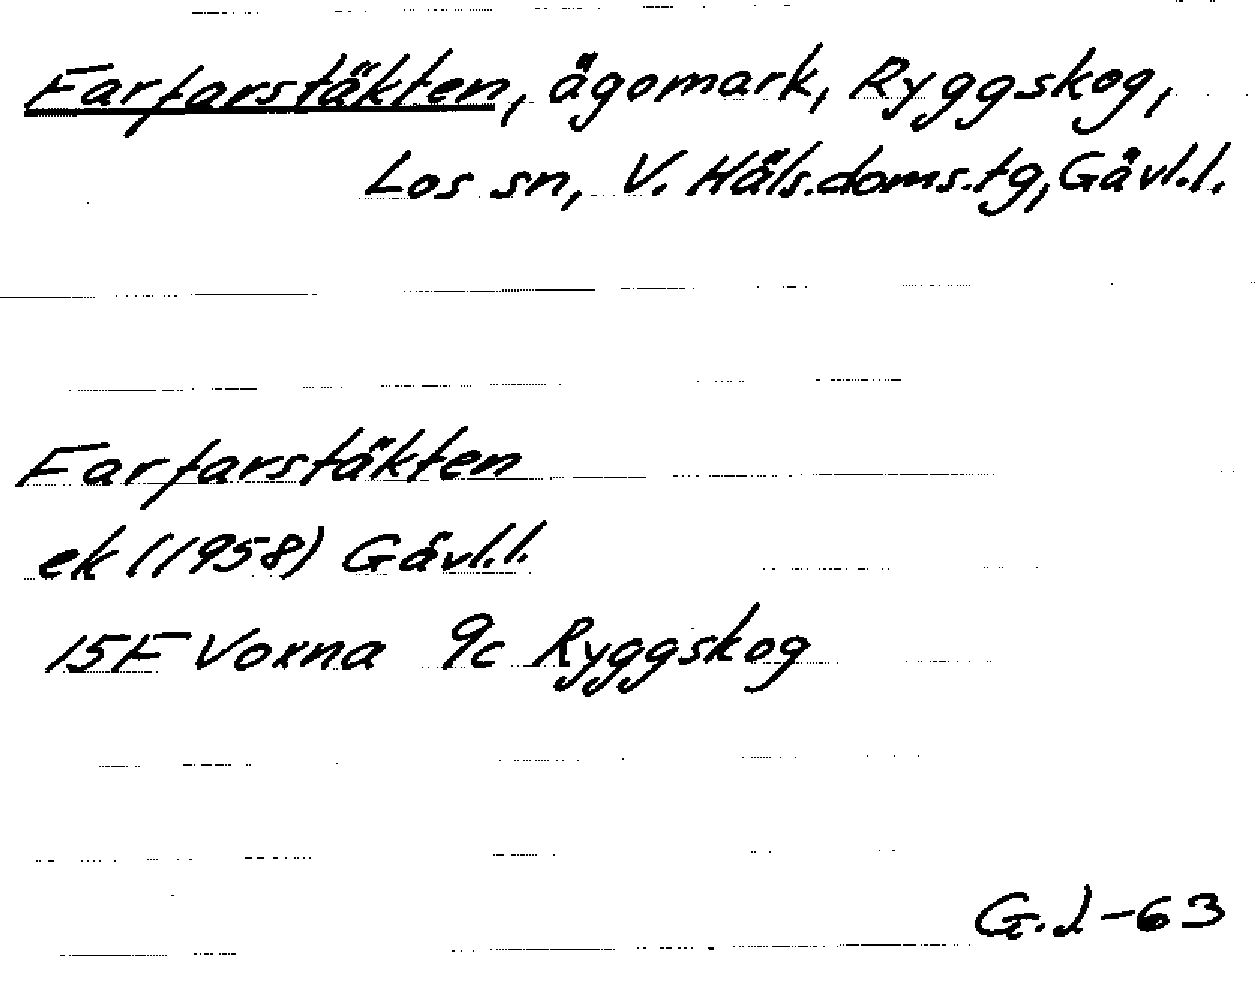 Farfarstäkten, ägomark, Ryggskog,
Los sn, V. Häls.doms.tg, Gävl.l.
Farfarstäkten
ek (1958) Gävl.l.
15F Voxna 9c Ryggskog
G.J-63